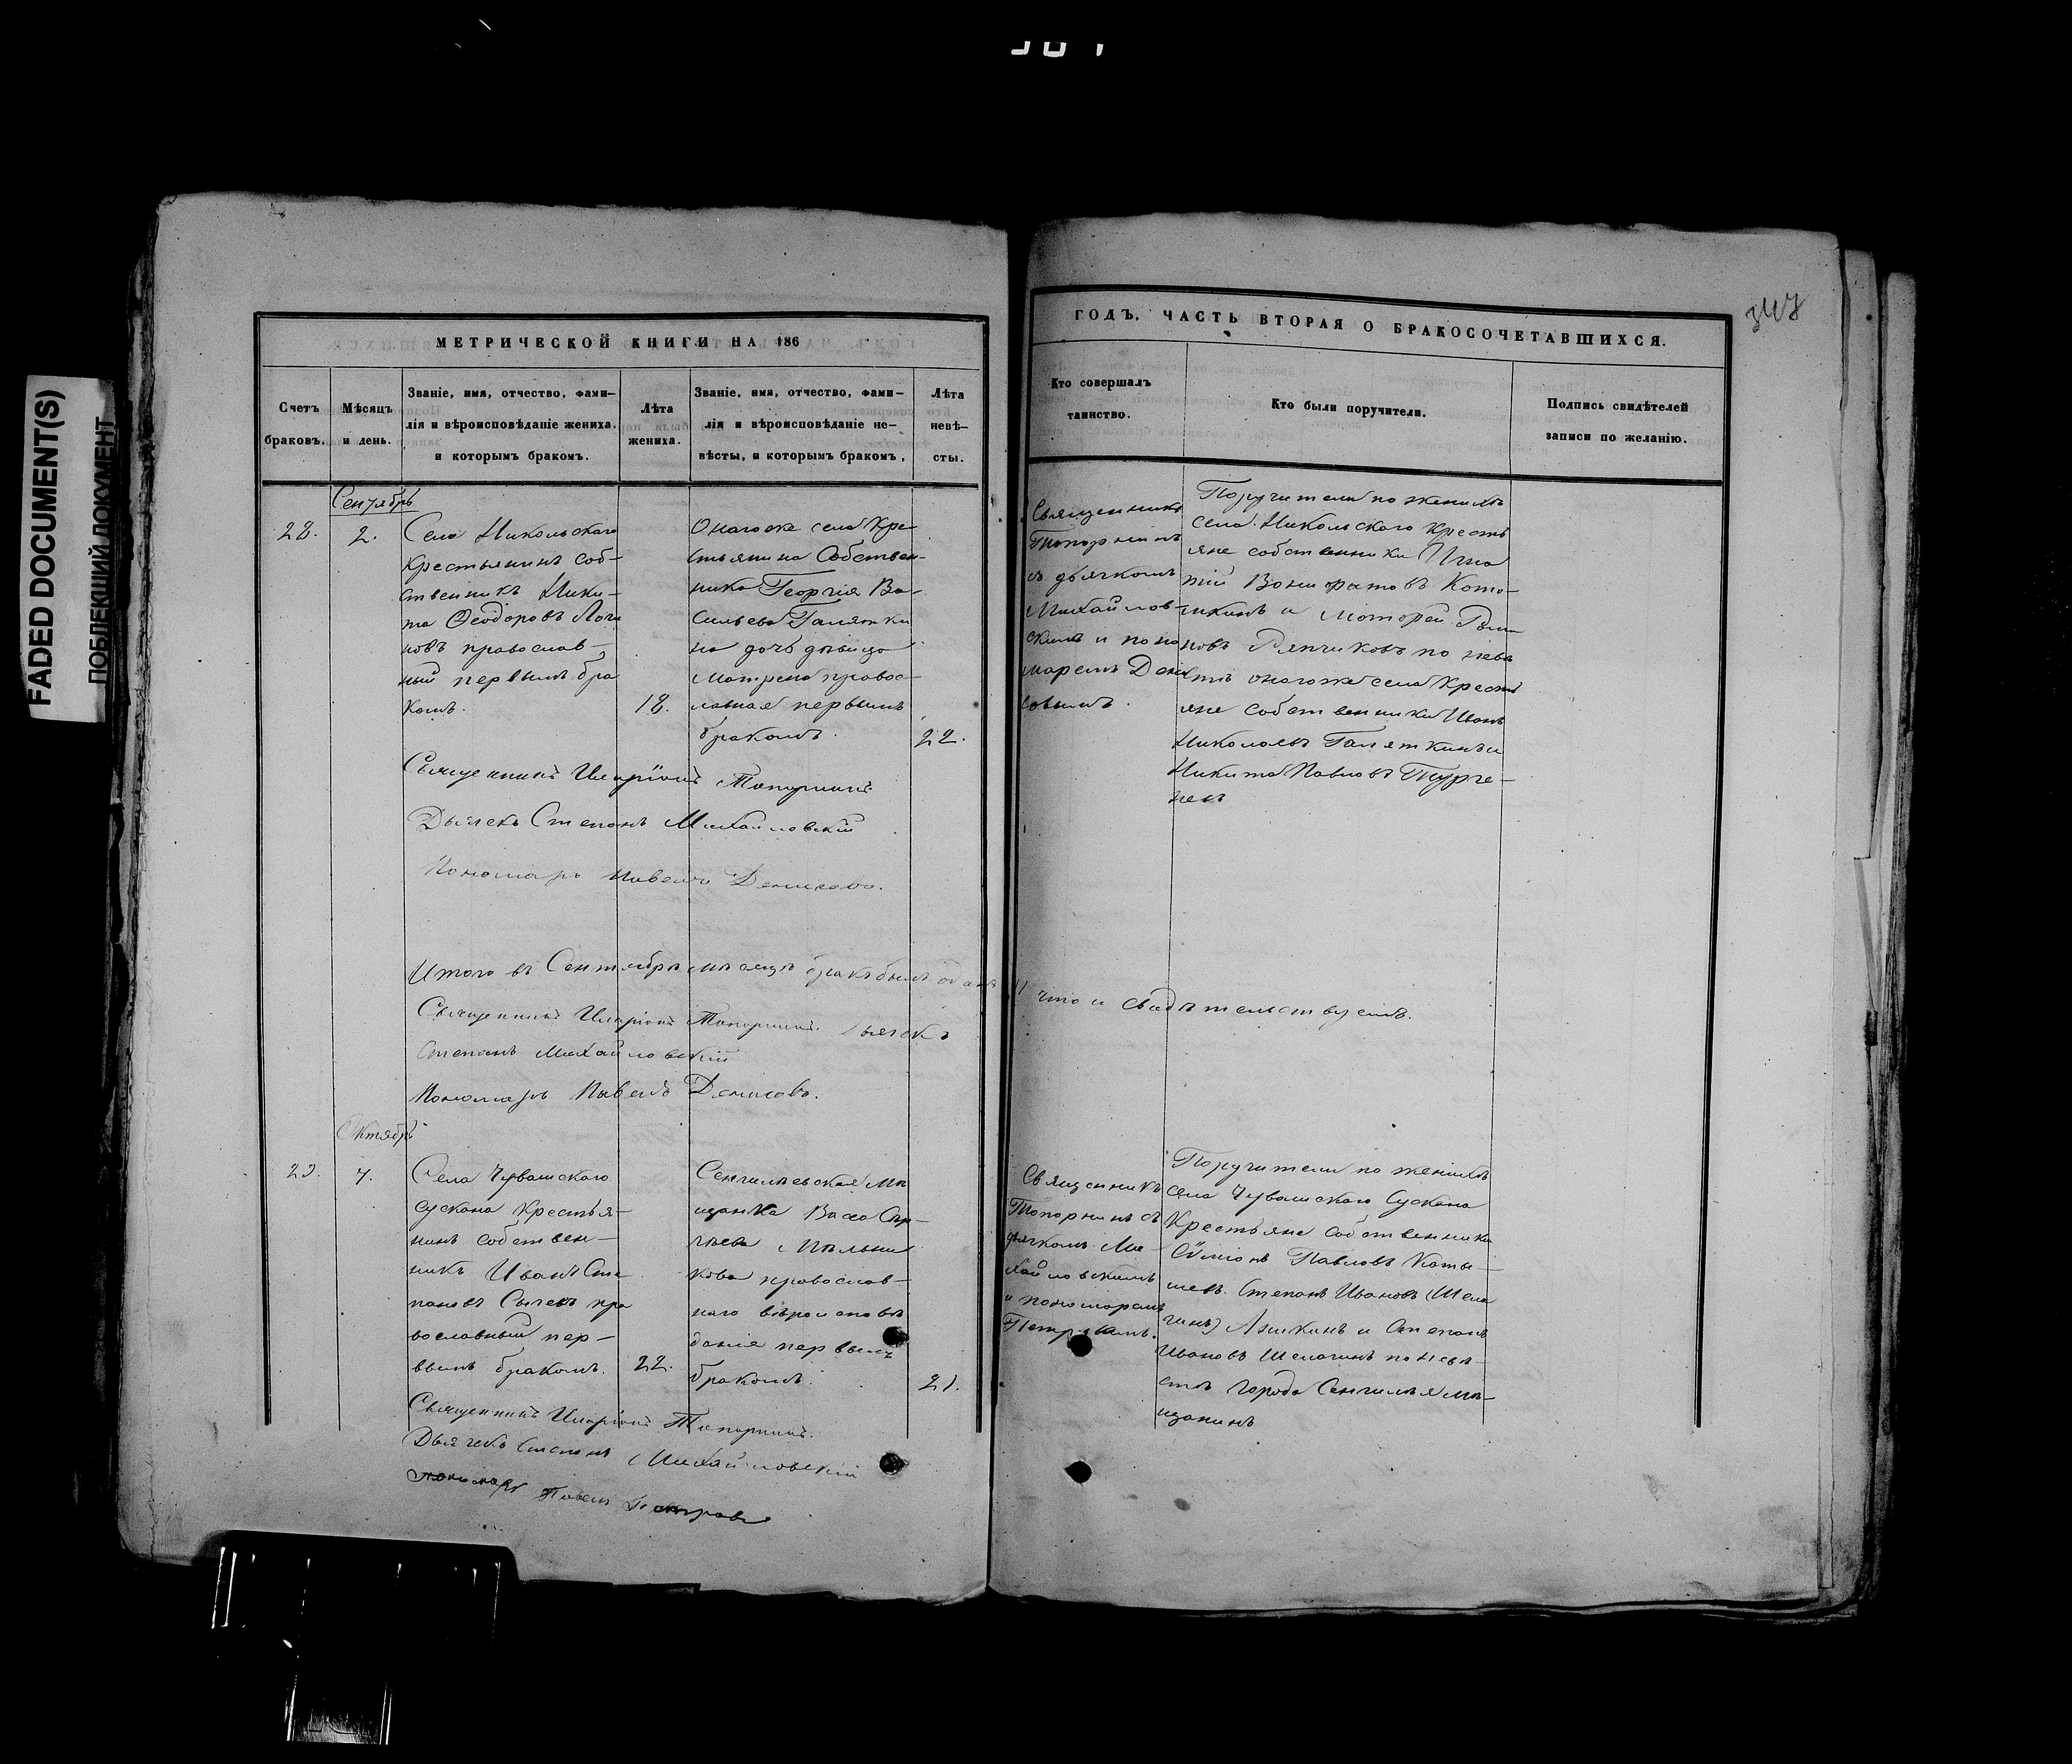 FADED DOCUMENT(S)
ПОБЛЕКШИЙ ДОКУМЕНТ
347
МЕТРИЧЕСКОЙ КНИГИ НА 186
Счетъ
браковъ.
Мѣсяцъ
и день.
Званіе, имя, отчество, фами-
лія и вѣроисповѣданіе жениха.
и которымъ бракомъ.
Лѣта
жениха.
Званіе, имя, отчество, фами-
лія и вѣроисповѣданіе не-
вѣсты, и которымъ бракомъ,
Лѣта
невѣ-
сты.
Сентябрь
28.
2.
Села Никольскаго
Крестьянинъ соб-
ственникъ Ники-
та Ѳеодоровъ
новъ православ-
ный первымъ бра
комъ.
18.
Онагоже села Кре
стьянина Собствен-
ника Георгія Ва-
сильева Галятки
на дочь дѣвица
Матрена правос-
лавная первымъ
бракомъ.
22.
Священникъ Иларіонъ Топорнинъ
Дьячекъ Степанъ Михайловскій
Пономарь Павелъ Денисовъ.
Итого въ Сентябрѣ мѣсяцѣ бракъ былъ
Священникъ Иларіонъ Топорнинъ. Дьячекъ
Степанъ Михайловскій
Пономарь Павелъ Денисовъ.
Октябрь
29.
7.
Села Чувашскаго
Сускана Крестья-
нинъ собствен-
никъ Иванъ Сте
пановъ Сычевъ пра
вославный пер-
вымъ бракомъ.
22.
Сенгилѣевская мѣ
щанка Васса Сер-
гѣева Мѣльни
кова православ-
наго вѣроисповѣ
данія первымъ
бракомъ.
21.
Священникъ Иларіонъ Топорнинъ.
Дьячекъ Степанъ Михайловскій
пономарь Павелъ Петровъ
ГОДЪ. ЧАСТЬ ВТОРАЯ О БРАКОСОЧЕТАВШИХСЯ.
Кто совершалъ
таинство.
Кто были поручители.
Подпись свидѣтелей
записи по желанію.
Священникъ
Топорнинъ
съ дьячкомъ
Михайлов-
скимъ и поно
маремъ Дени
совымъ.
Поручители по женихѣ
села Никольскаго кресть
яне собственники Игна
тій Вонифатовъ Кото-
шкинъ и
новъ Рятчиковъ по невѣ
стѣ онагоже села Кресть
яне собственники Иванъ
Николаевъ Галяткинъ и
Никита Павловъ Турге-
невъ
что и свидѣтельствуемъ.
Священникъ
Топорнинъ съ
дьячкомъ Ми-
хайловскимъ
и пономаремъ
Петровымъ.
Поручители по женихѣ
села Чувашскаго Сускана
Крестьяне собственники
Симіонъ Павловъ Каты-
шевъ. Степанъ Ивановъ Шела
гинъ) Аникинъ и Степанъ
Ивановъ Шелагинъ по невѣ-
стѣ города Сенгилѣя мѣ-
щанинъ